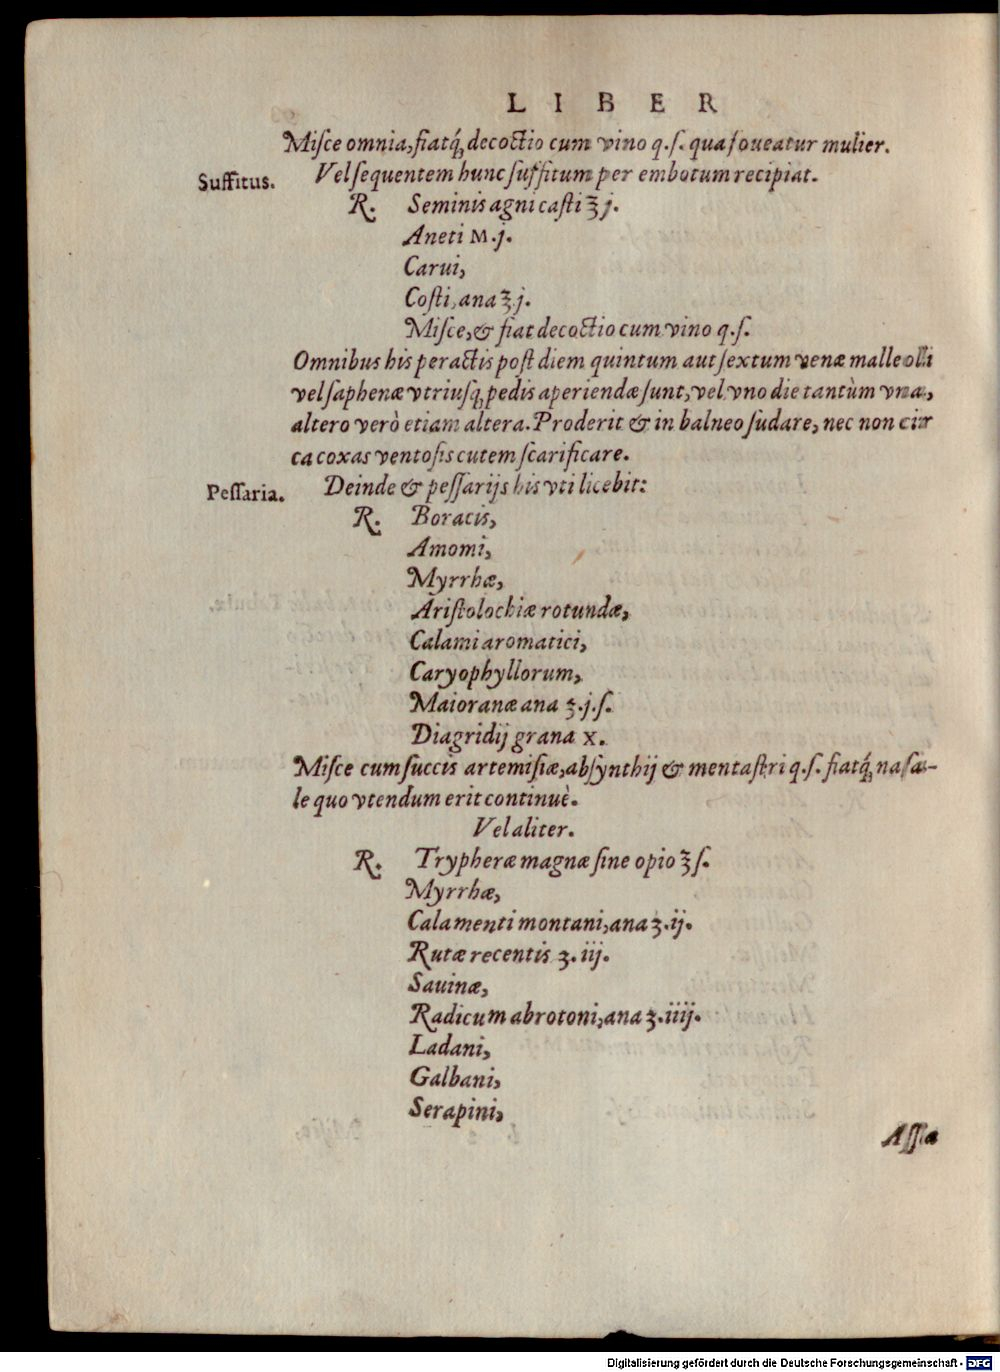 LIBER
Miſce omnia, fiatq́; decoctio cum vino q.ſ. qua foueatur mulier.
Suffitus.
Vel ſequentem hunc ſuffitum per embotum recipiat.
R. Seminis agni caſti ℥ j.
Aneti M.j.
Carui,
Coſti, ana ℥.j.
Miſce, & fiat decoctio cum vino q.ſ.
Omnibus his peractis poſt diem quintum aut ſextum venæ malleoli
vel ſaphenæ vtriuſq; pedis aperiendæ ſunt, vel vno die tantùm vna,
altero verò etiam altera. Proderit & in balneo ſudare, nec non cir
ca coxas ventoſis cutem ſcarificare.
Peſſaria.
Deinde & peſſarijs his vti licebit:
R. Boracis,
Amomi,
Myrrhæ,
Ariſtolochiæ rotundæ,
Calami aromatici,
Caryophyllorum,
Maioranæ ana ʒ.j.ſ.
Diagridij grana X.
Miſce cum ſuccis artemiſiæ, abſynthij & mentaſtri q.ſ. fiatq́; naſa-
le quo vtendum erit continuè.
Vel aliter.
R. Trypheræ magnæ ſine opio ℥ ſ.
Myrrhæ,
Calamenti montani, ana ʒ.ij.
Rutæ recentis ʒ.iij.
Sauinæ,
Radicum abrotoni, ana ʒ.iiij.
Ladani,
Galbani,
Serapini,
Aſſa
Digitalisierung gefördert durch die Deutsche Forschungsgemeinschaft - DFG